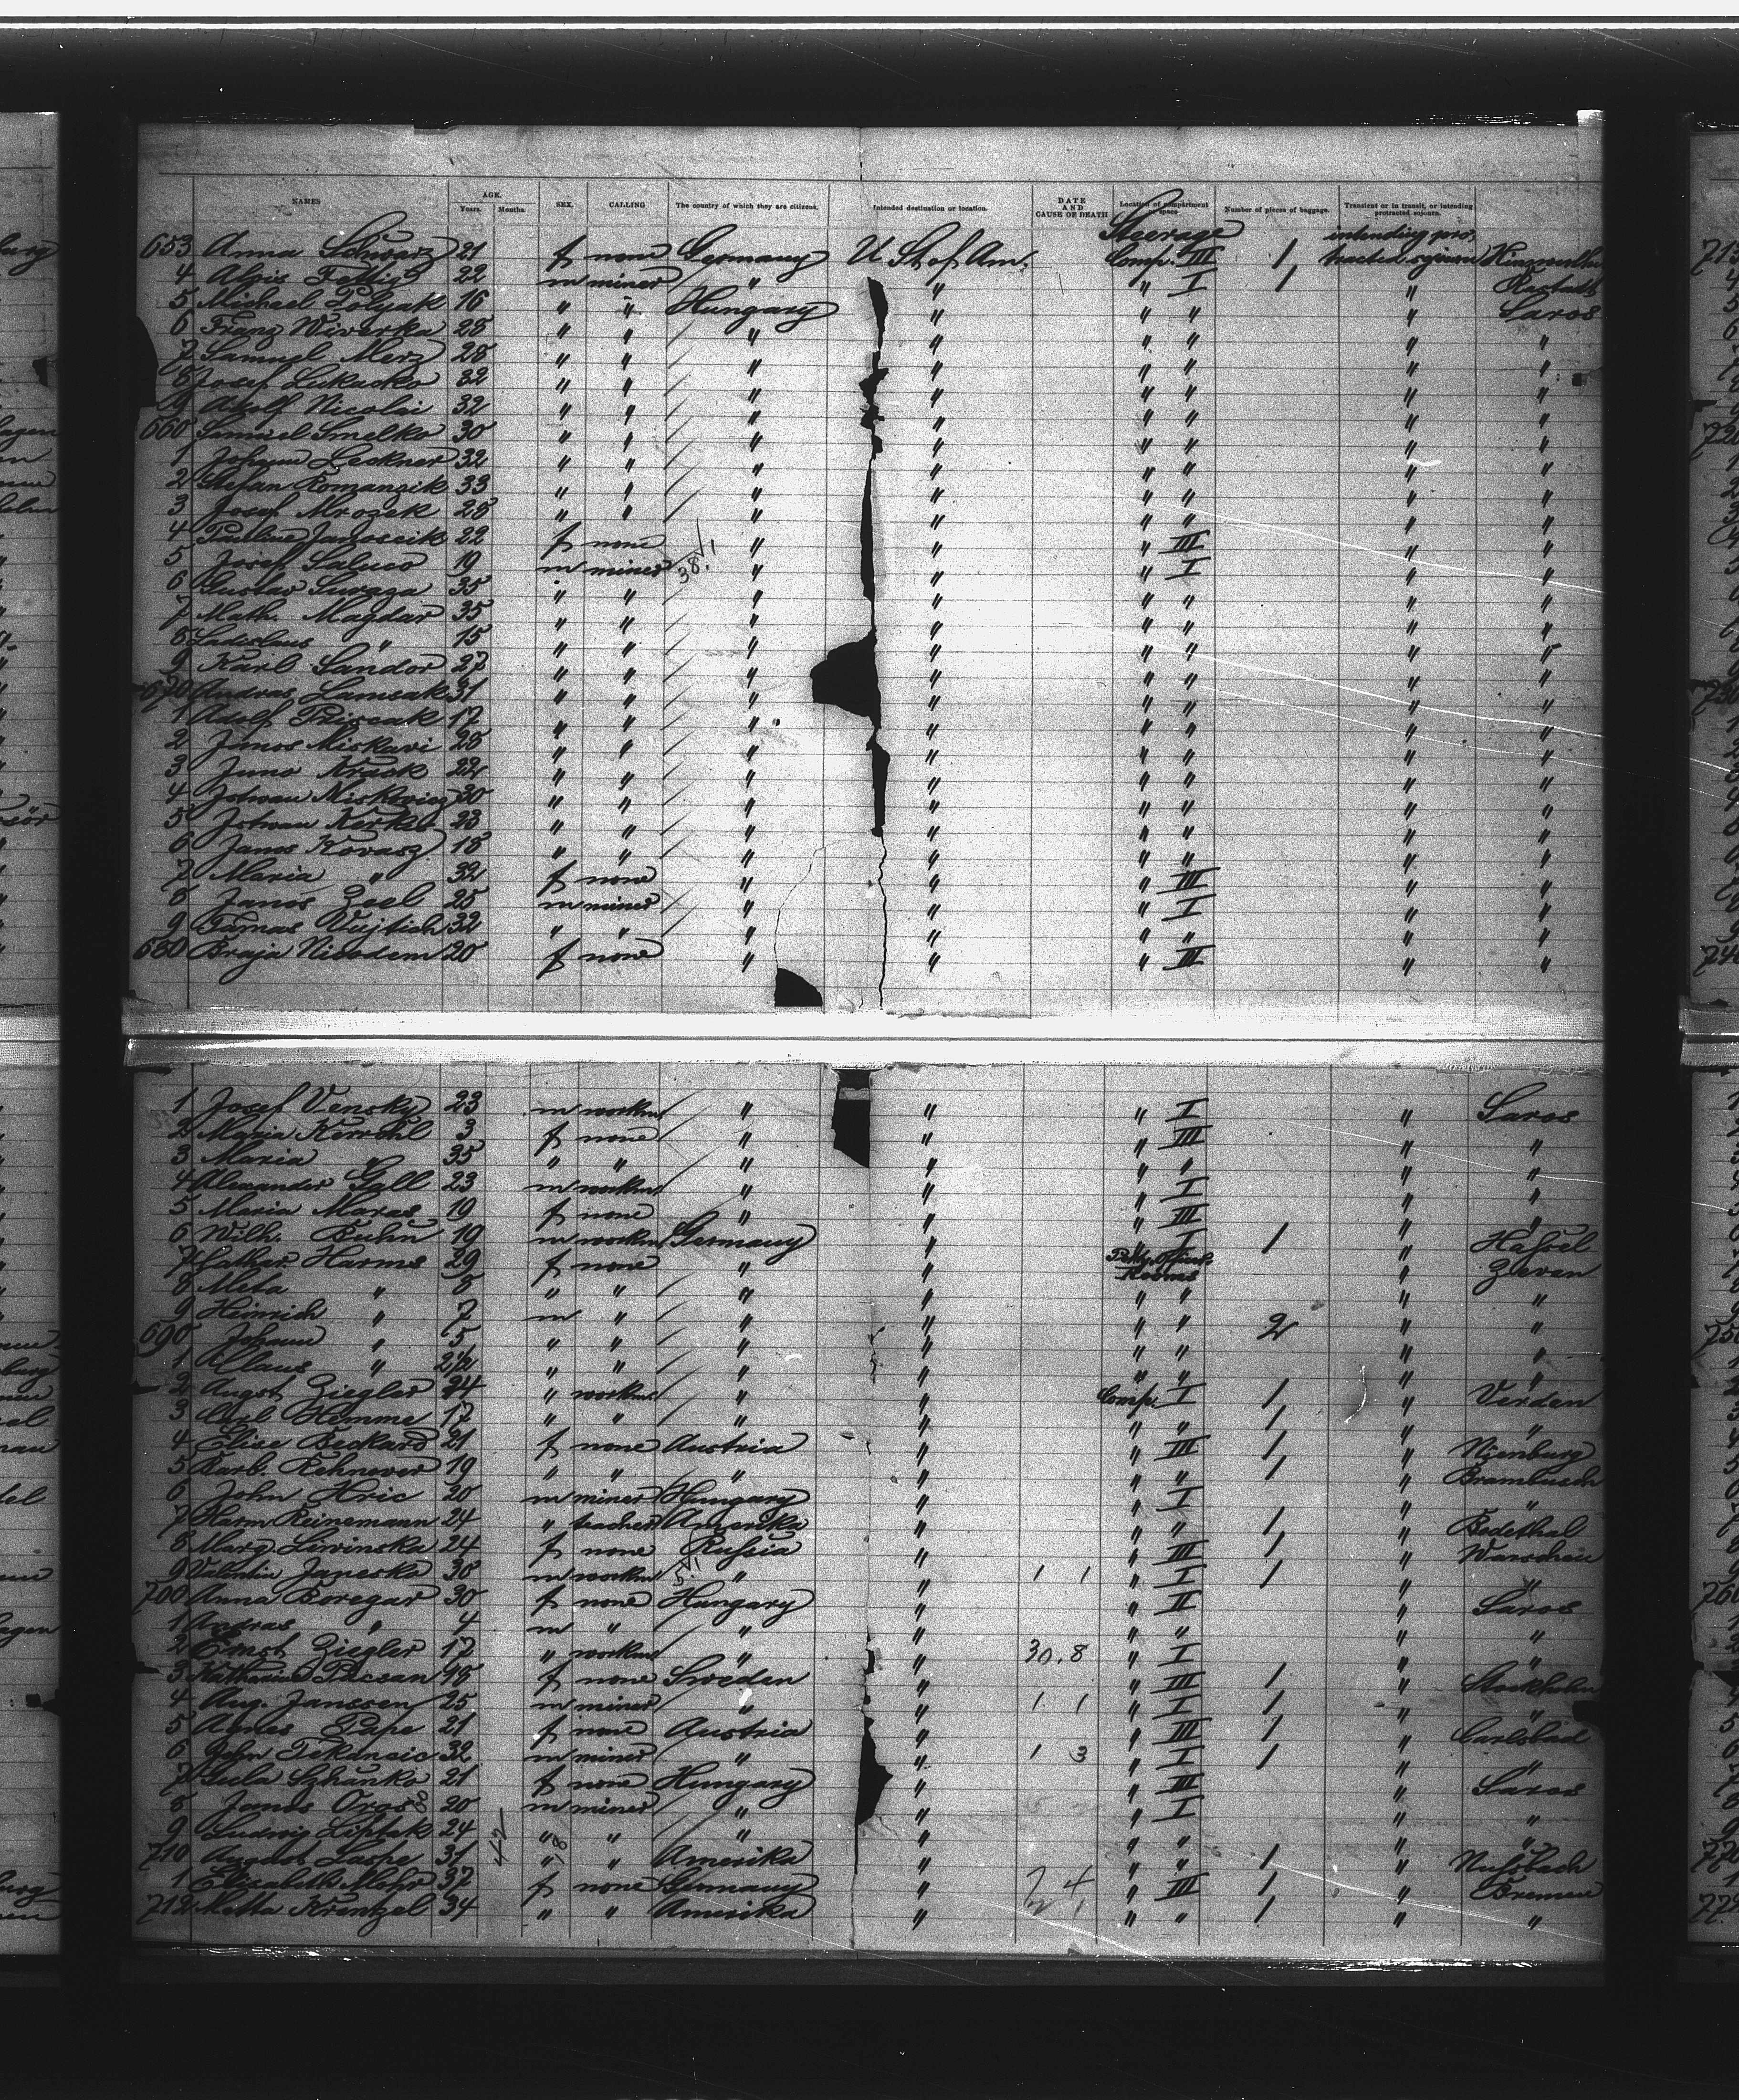 NAMES AGE. Years. Months SEX. CALLING The country of which they are citizens. Intended destination or location. DATE AND CAUSE OF DEATH Location of compartment or space Number of pieces of baggage. Transient or in transit, or intending protracted sojourn.
Steerage intending pro,
653 Anna Schwarz 21 f none Germany U. St. of Am. Comp. III 1 tracted sojourn
4 Alois Fettig 22 m miner " " " I 1 " Rastadt
5 Michael Polyak 16 " " Hungary " " " " Saros
6 Franz Wiverka 28 " " " " " " " "
7 Samuel Merz 28 " " " " " " " "
8 Josef Lukacko 32 " " " " " " " "
9 Adolf Nicolai 32 " " " " " " " "
660 Samuel Smelko 30 " " " " " " " "
1 Johann Leckner 32 " " " " " " " "
2 Stefan Romanzik 33 " " " " " " " "
3 Josef Mrozek 28 " " " " " " " "
4 Pauline Janoscik 22 f none " " " III " "
5 Josef Saluco 19 m miner " " " I " "
6 Gustav Suraza 35 " " " " " " " "
7 Math. Magdar 35 " " " " " " " "
8 Ladislaus " 15 " " " " " " " "
9 Karl Sandor 27 " " " " " " " "
670 Andras Lamsak 31 " " " " " " " "
1 Adolf Priscak 17 " " " " " " " "
2 Janos Miskavi 28 " " " " " " " "
3 Juno Krack 22 " " " " " " " "
4 Jotwan Miskovicz 30 " " " " " " " "
5 Jotwan Kerka 23 " " " " " " " "
6 Janos Kovasz 18 " " " " " " " "
7 Maria " 32 f none " " " III " "
8 Janos Zeel 25 m miner " " " I " "
9 Tamas Vujtich 32 " " " " " " " "
680 Braja Nicodem 20 f none " " " III " "
1 Josef Vensky 23 m workm. " " " I " Saros
2 Maria Kerrohl 3 f none " " " III " "
3 Maria " 35 " " " " " " " "
4 Alexander Gall 23 m workm. " " " I " "
5 Maria Maras 19 f none " " " III " "
6 Wilh. Buhn 19 m workm. Germany " " I 1 " Hassel
7 Cathar. Harms 29 f none " " Rooms " Zeven
8 Meta " 8 " " " " " " " "
9 Heinrich " 7 m " " " " " 2 " "
690 Johann " 5 " " " " " " " "
1 Klaus " 2 1/2 " " " " " " " "
2 August Ziegler 24 " workm. " " Comp. I 1 " Verden
3 Carl Hemme 17 " " " " " " 1 " "
4 Elise Beckard 21 f none Austria " " III 1 " Nienburg
5 Barb. Rehnever 19 " " " " " " 1 " Brambusch
6 John Hric 20 m miner Hungary " " I " "
7 Harm Reinemann 24 " teacher Amerika " " " 1 " Bodethal
8 Marg. Livinska 24 f none Russia " " III 1 " Warschau
9 Valentin Janeska 30 m workm. " " 1 1 " I 1 " "
700 Anna Boregar 30 f none Hungary " " II " Saros
1 Andras " 4 m " " " " " " "
2 Ernst Ziegler 17 " workm. " " 30.8 " I " "
3 Katharina Pecsan 48 f none Sweden " " III 1 " Stockholm
4 Aug. Janssen 25 m miner " " 1 1 " I 1 " "
5 Agnes Pape 21 f none Austria " " III 1 " Carlsbad
6 John Tekancic 32 m miner " " 1 3 " I 1 " "
7 Gula Szhanko 21 f none Hungary " " III " Saros
8 Janos Oros 20 m miner " " " I " "
9 Ludwig Liptak 24 " " " " " " " "
710 August Laspe 31 " " Amerika " " " 1 " Nussbach
1 Elizabeth Mohr 37 f none Germany " 7 4 " III 1 " Bremen
712 Metta Krentzel 34 " " Amerika " 2 1 " " 1 " "